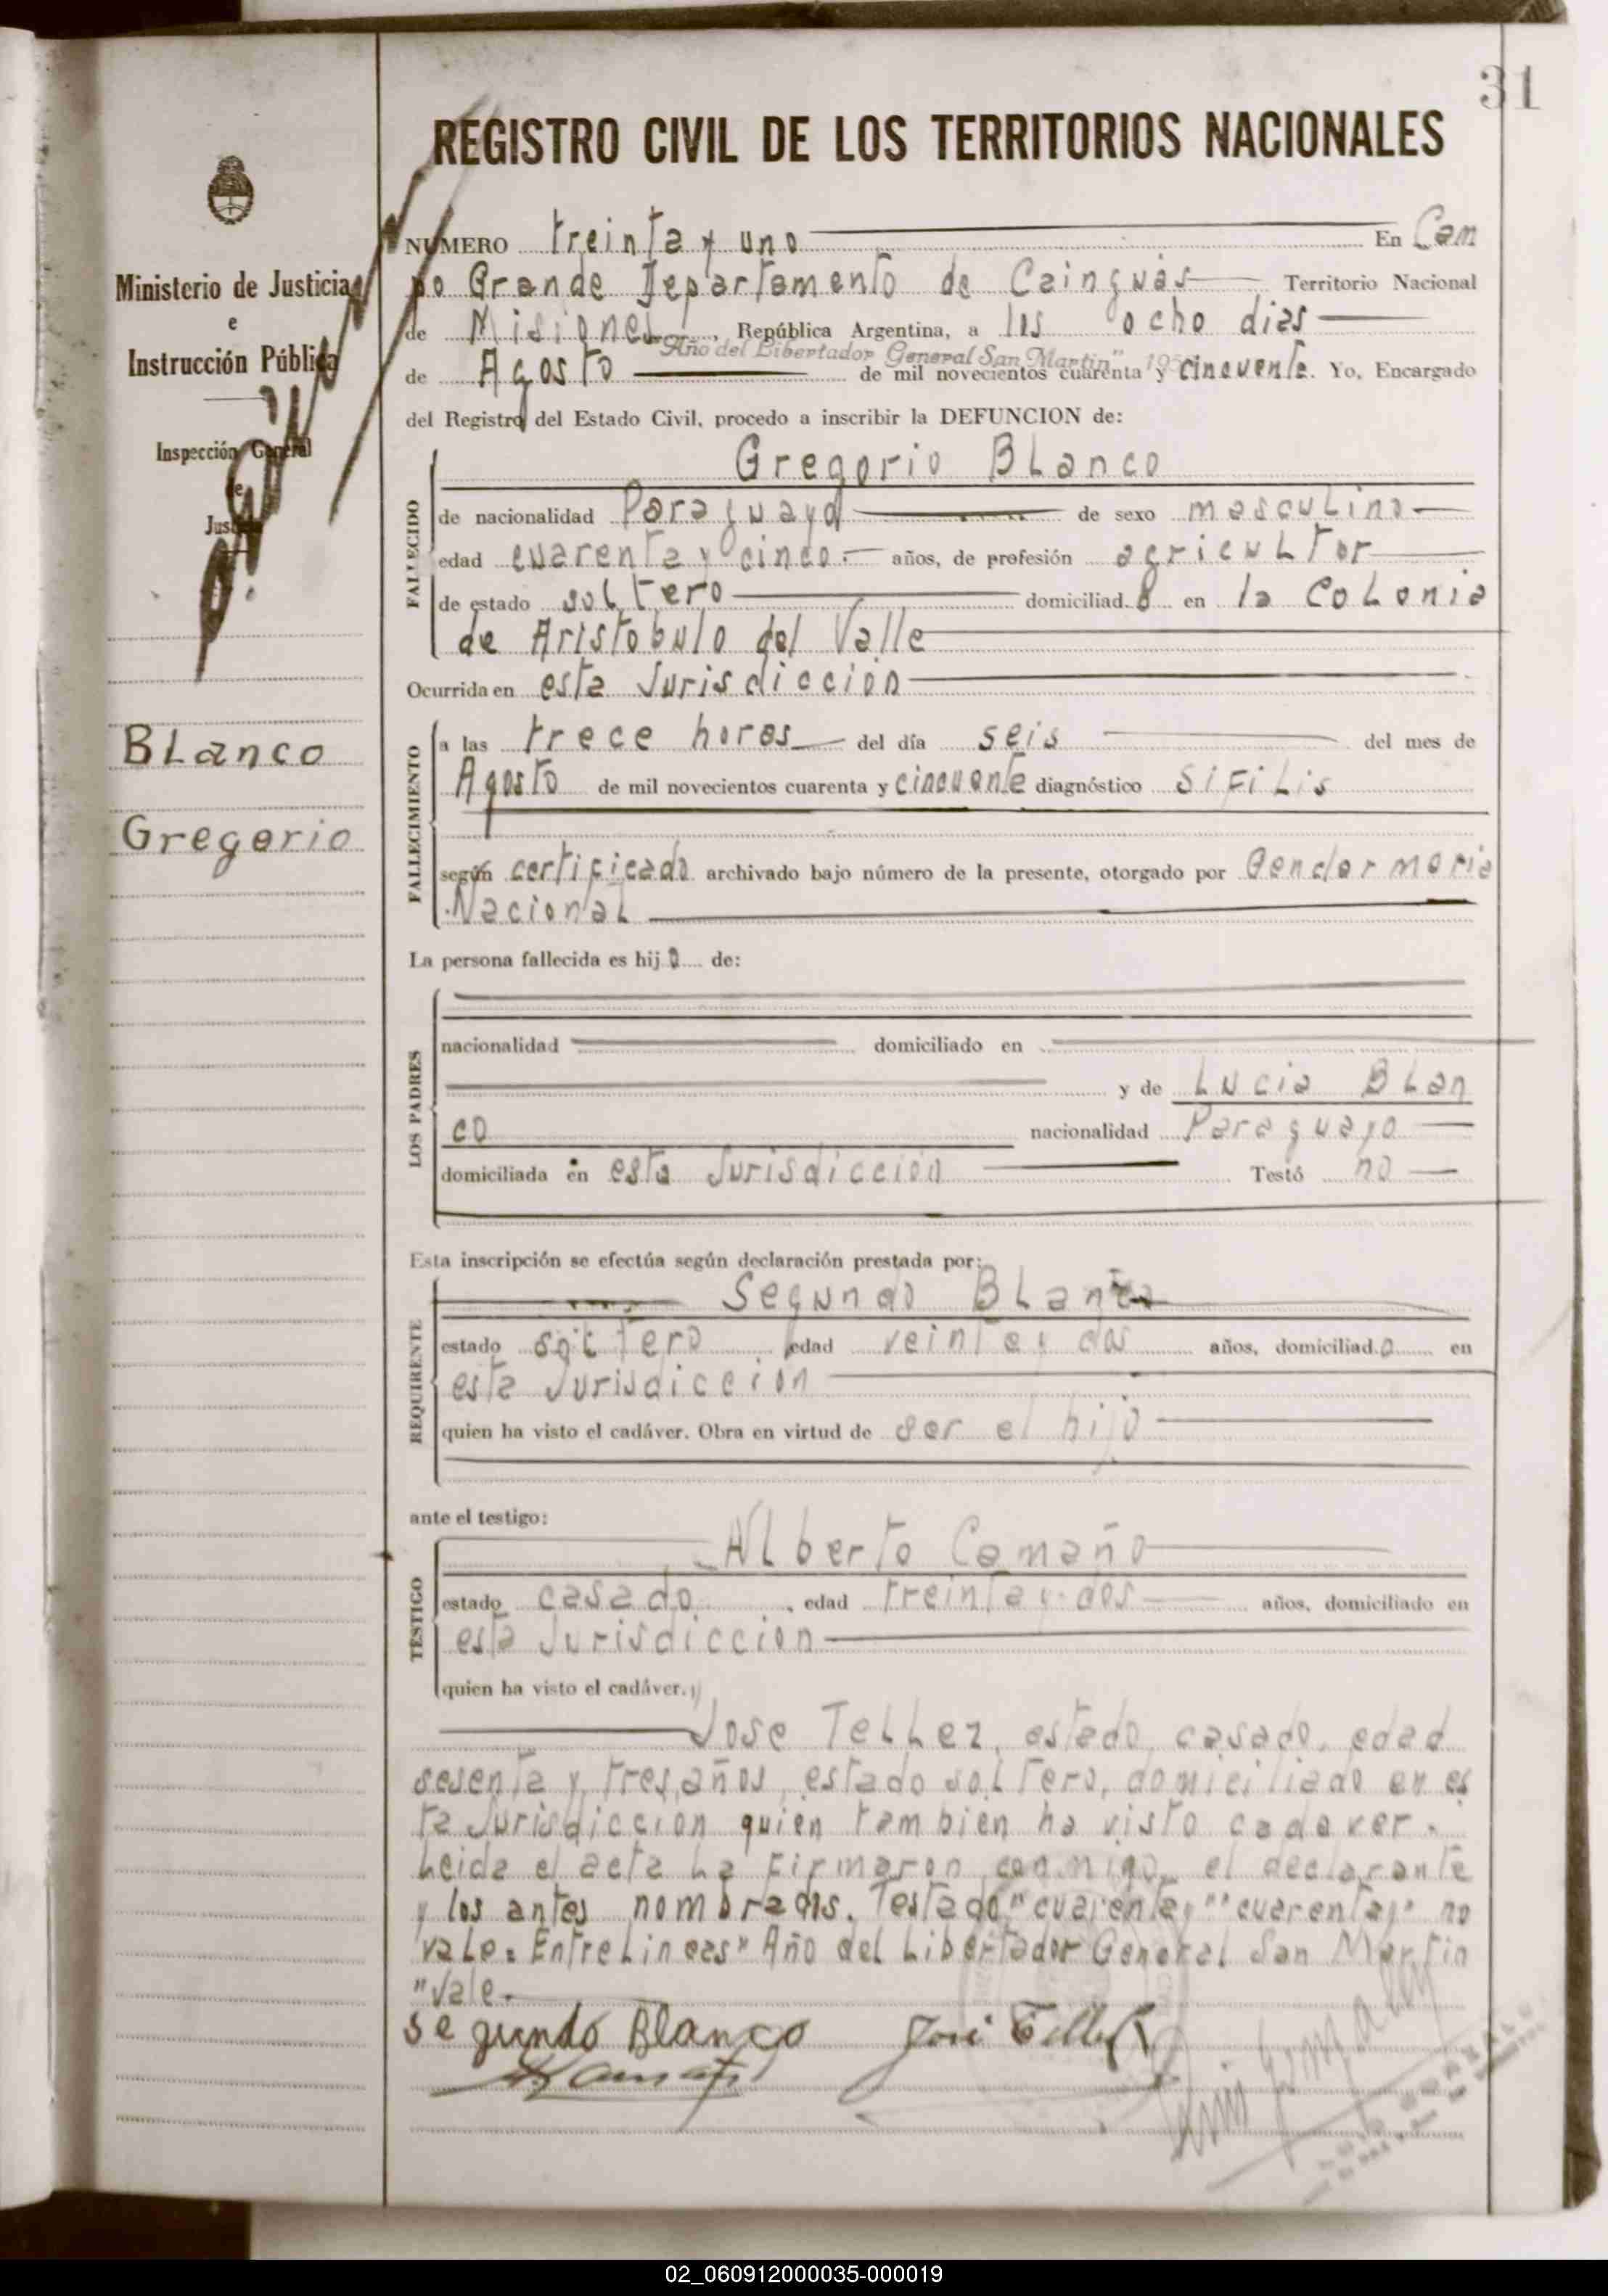 31
REGISTRO CIVIL DE LOS TERRITORIOS NACIONALES
Ministerio de Justicia
e
Instrucción Pública
Inspección General
de
Justicia
Blanco
Gregorio
NÚMERO treinta y uno En Cam
po Grande Departamento de Cainguás Territorio Nacional
de Misiones, República Argentina, a los ocho dias
"Año del Libertador General San Martin" 195
de Agosto de mil novecientos cuarenta y cincuenta. Yo, Encargado
del Registro del Estado Civil, procedo a inscribir la DEFUNCION de:
FALLECIDO
Gregorio Blanco
de nacionalidad Paraguaya de sexo masculino
edad cuarenta y cinco años, de profesión agricultor
de estado soltero domiciliad o en la Colonia
de Aristobulo del Valle
Ocurrida en esta Jurisdiccion
FALLECIMIENTO
a las trece horas del día seis del mes de
Agosto de mil novecientos cuarenta y cincuenta diagnóstico Sifilis
según certificado archivado bajo número de la presente, otorgado por Gendarmeria
Nacional
La persona fallecida es hij o de:
LOS PADRES
nacionalidad domiciliado en
y de Lucia Blan
co nacionalidad Paraguayo
domiciliada en esta Jurisdiccion Testó no
Esta inscripción se efectúa según declaración prestada por:
REQUIRENTE
Segundo Blanco
estado soltero edad veinte y dos años, domiciliad o en
esta Jurisdiccion
quien ha visto el cadáver. Obra en virtud de ser el hijo
ante el testigo:
TESTIGO
Alberto Camaño
estado casado, edad treinta y dos años, domiciliado en
esta Jurisdiccion
quien ha visto el cadáver.
Jose Tellez, estado casado, edad
sesenta y tres años, estado soltero, domiciliado en es
ta Jurisdiccion quien tambien ha visto cadaver.
Leida el acta la firmaron conmigo, el declarante
y los antes nombrados. Testado "cuarenta y" "cuarenta y" no
vale = Entrelineas "Año del Libertador General San Martin
"Vale.
Segundo Blanco José Tellez
02_060912000035-000019